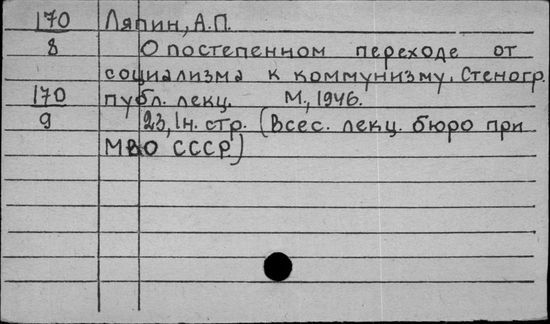 170 Ляпин, А.П.
8 О постепенном переходе от
социализма к коммунизму. Стеногр.
170 публ. лекц. М., 1946.
9 23, 1н. стр. (Всес. лекц. бюро при
МВО СССР.)